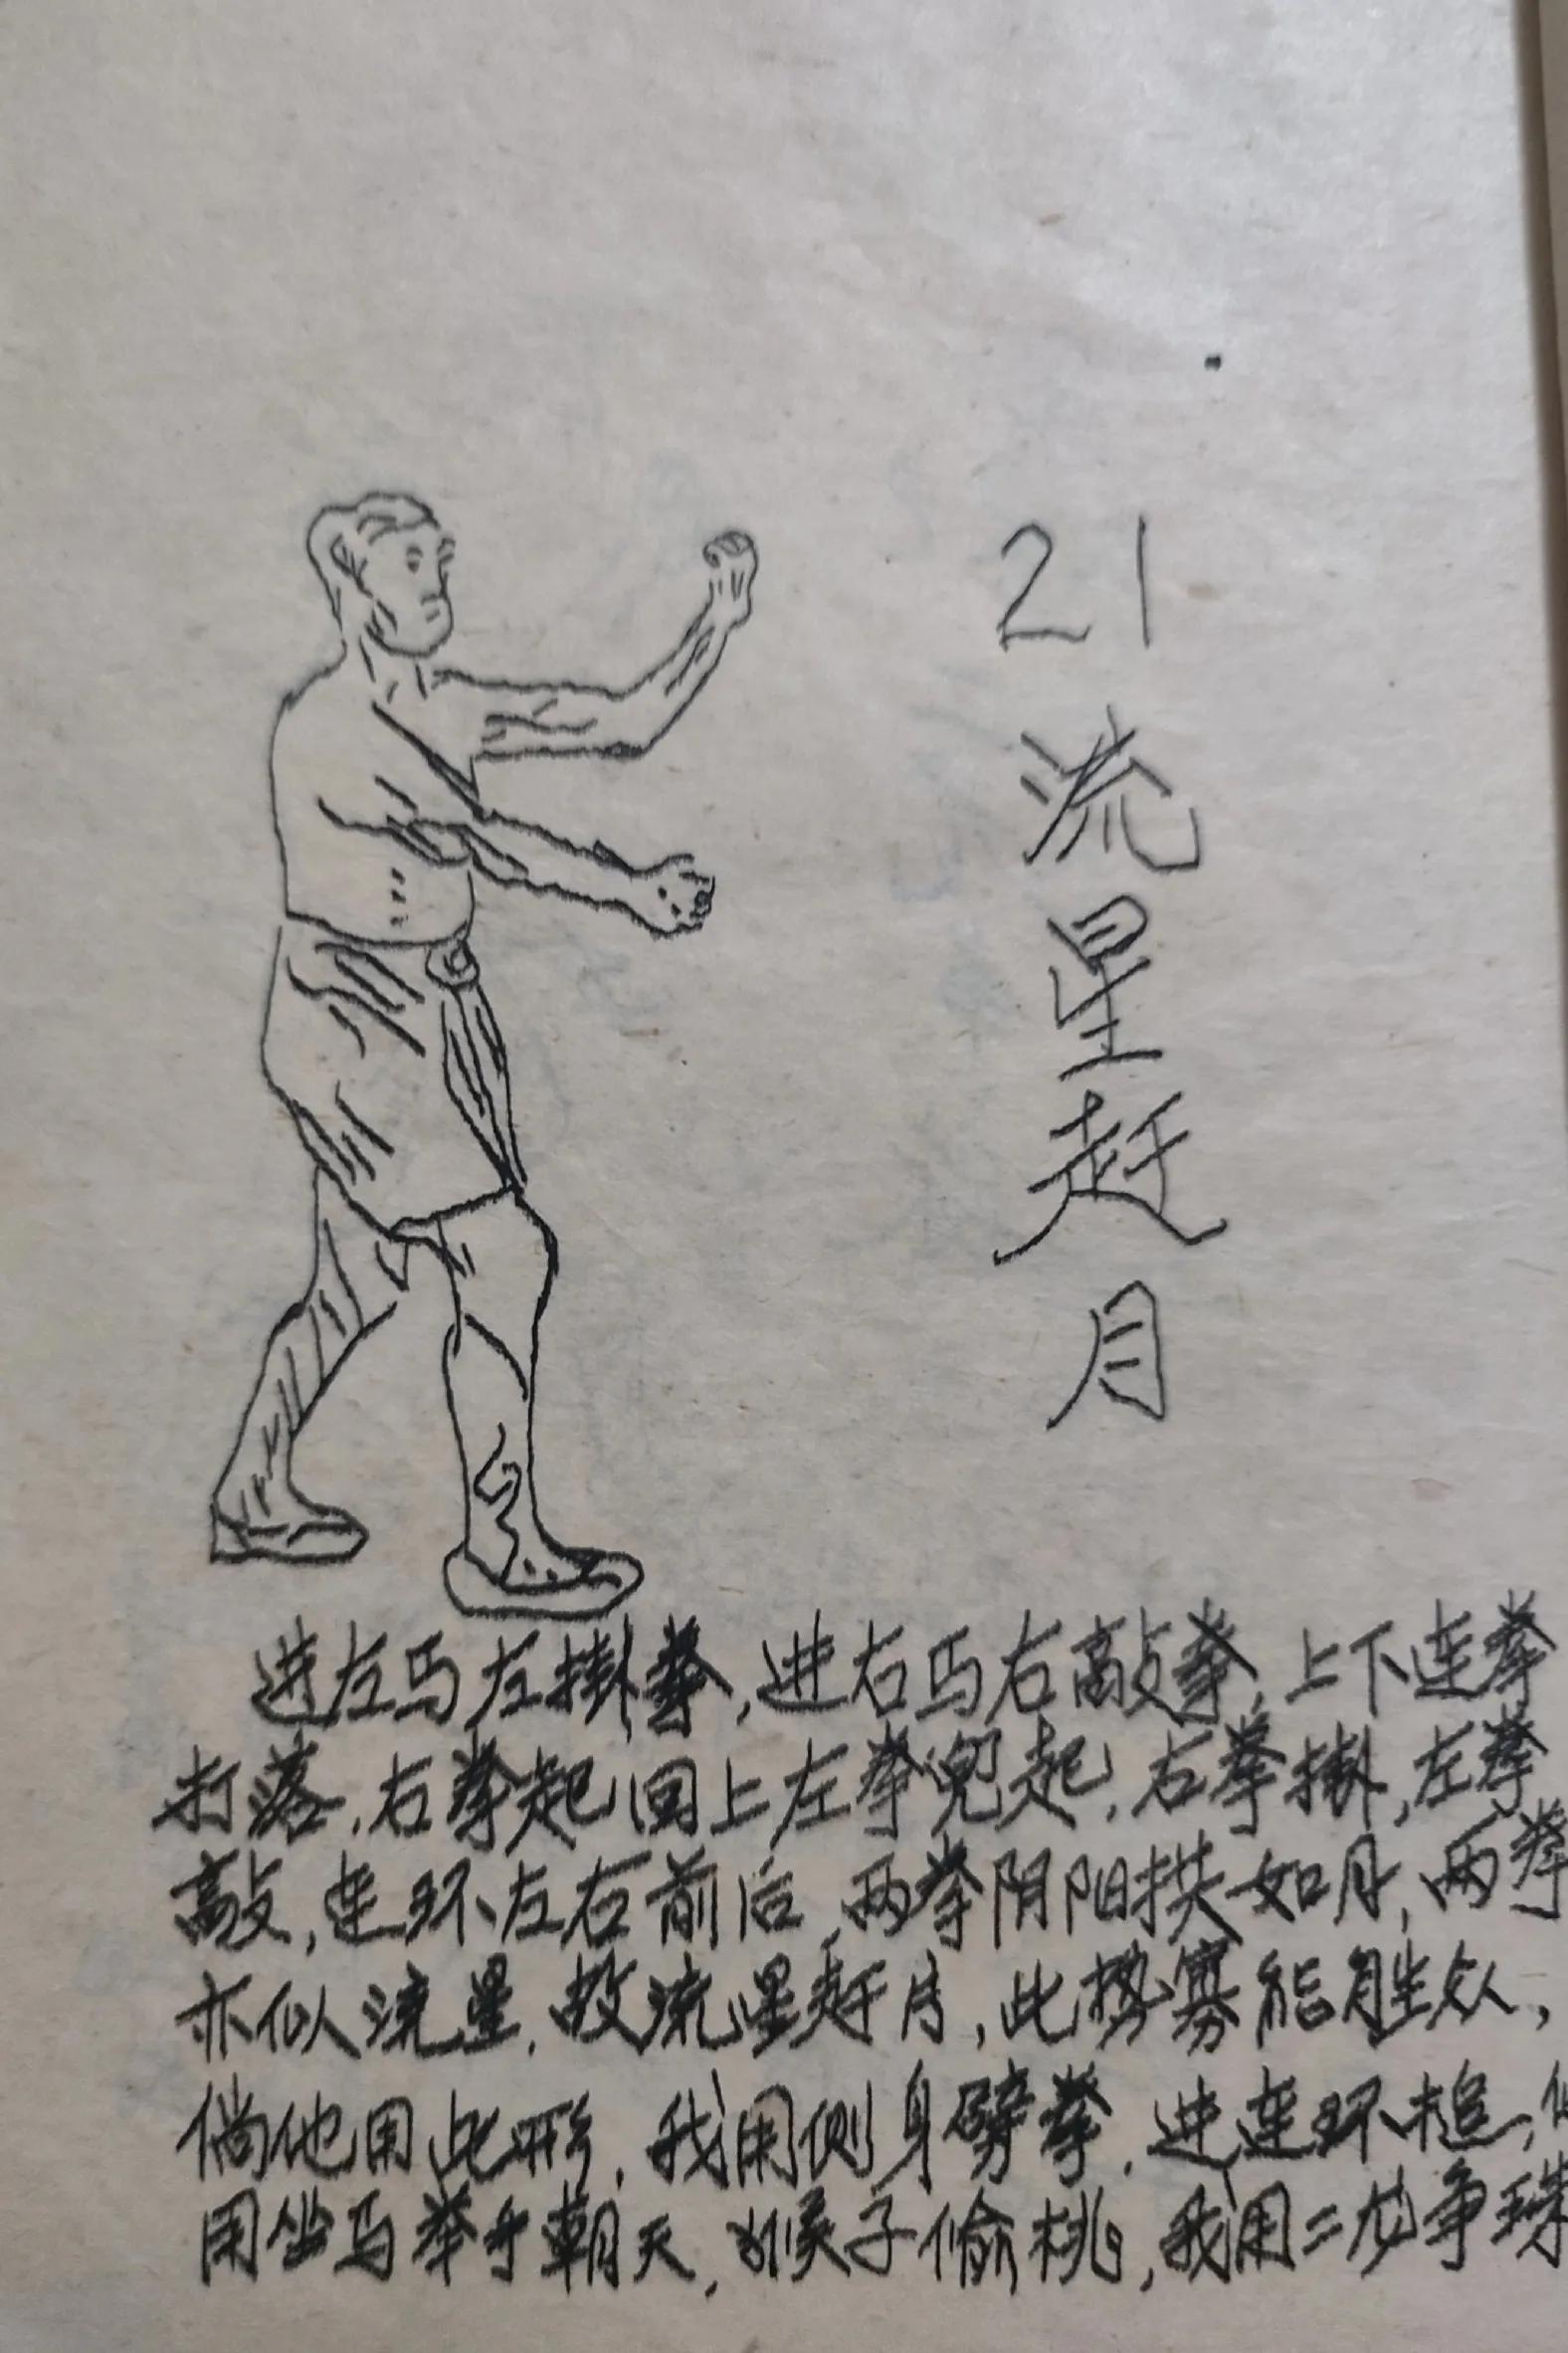 21
流星赶月
进左马左掛拳，进右马右敲拳，上下连拳
打落，右拳起回上左拳兜起，右拳掛，左拳
敲，连环左右前后，两拳阴阳拱如月，两拳
亦似流星，故流星赶月，此势寡能胜众，
倘他用此形，我用侧身劈拳，进连环搥，
用坐马举手朝天，猴子偷桃，我用二龙争珠